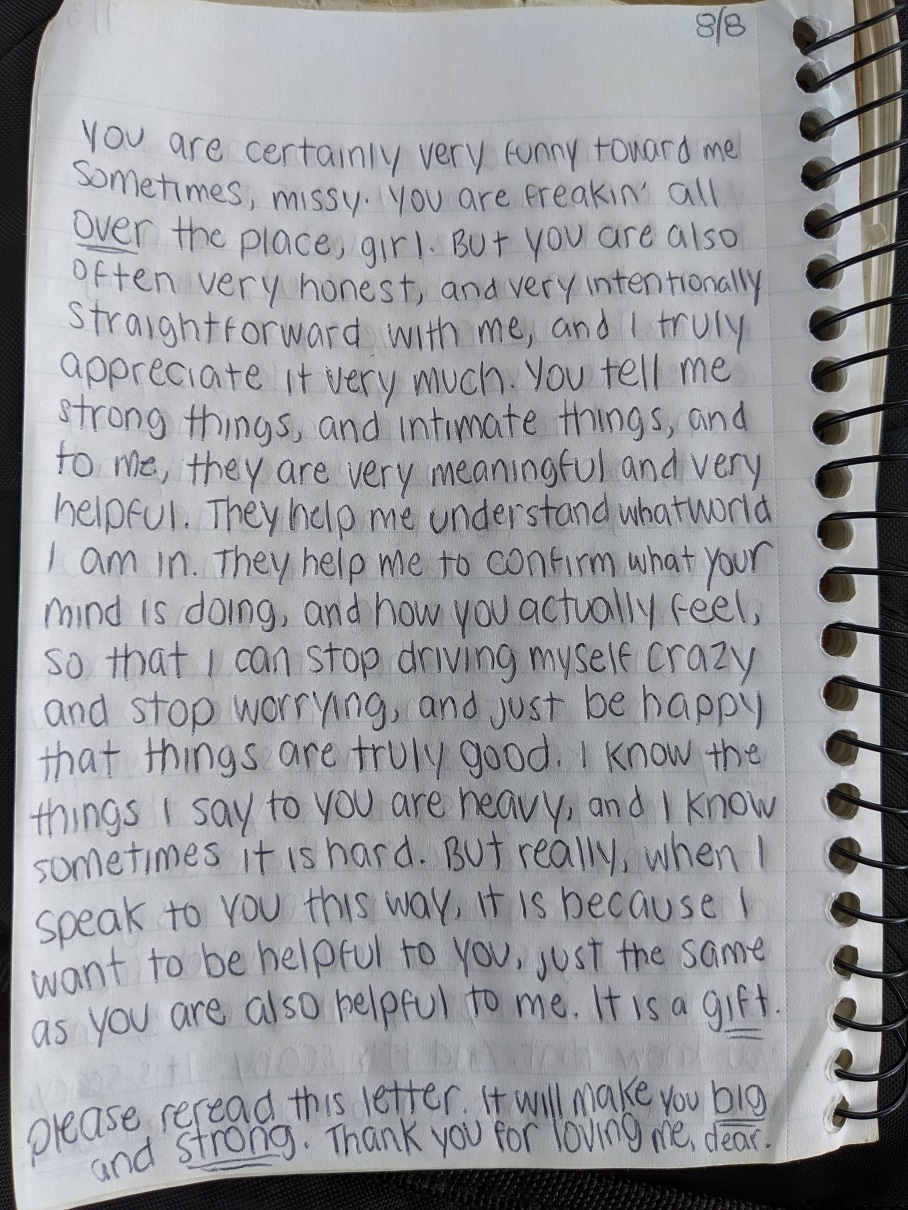 8/8
You are certainly very funny toward me
sometimes, missy. You are freakin' all
over the place, girl. But you are also
often very honest, and very intentionally
straightforward with me, and I truly
appreciate it very much. You tell me
strong things, and intimate things, and
to me, they are very meaningful and very
helpful. They help me understand what world
I am in. They help me to confirm what your
mind is doing, and how you actually feel,
so that I can stop driving myself crazy
and stop worrying, and just be happy
that things are truly good. I know the
things I say to you are heavy, and I know
sometimes it is hard. But really, when I
speak to you this way, it is because I
want to be helpful to you, just the same
as you are also helpful to me. It is a gift.
please reread this letter. It will make you big
and strong. Thank you for loving me, dear.